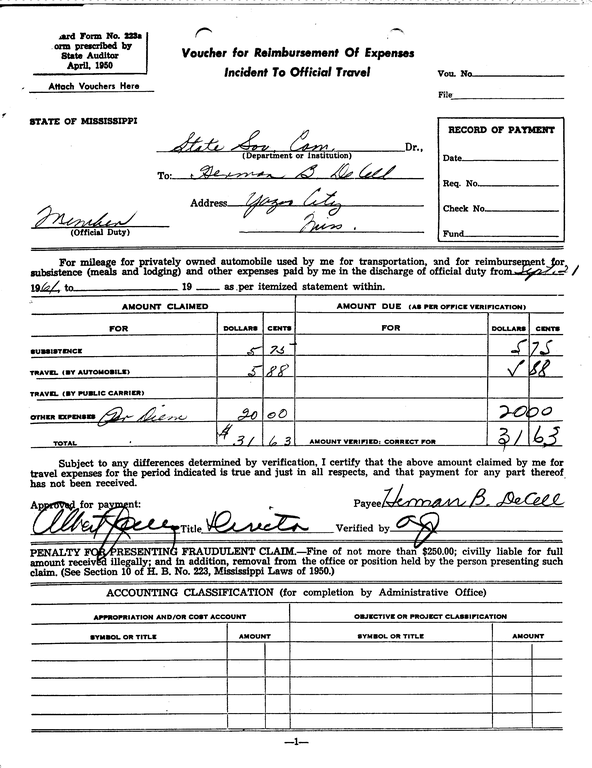 ard Form No. 223a
orm prescribed by
State Auditor
April, 1950
Attach Vouchers Here
Voucher for Reimbursement Of Expenses
Incident To Official Travel
Vou. No.
File
STATE OF MISSISSIPPI
State Sov. Com. Dr.,
(Department or Institution)
To: Herman B DeCell
Address Yazoo City
Miss.
Member
(Official Duty)
RECORD OF PAYMENT
Date
Req. No.
Check No.
Fund
For mileage for privately owned automobile used by me for transportation, and for reimbursement for
subsistence (meals and lodging) and other expenses paid by me in the discharge of official duty from Sept. 21
1961, to 19 as per itemized statement within.
AMOUNT CLAIMED AMOUNT DUE (AS PER OFFICE VERIFICATION)
FOR DOLLARS CENTS FOR DOLLARS CENTS
SUBSISTENCE 5 75 5 75
TRAVEL (BY AUTOMOBILE) 5 88 ✓ 88
TRAVEL (BY PUBLIC CARRIER)
OTHER EXPENSES Per Diem 20 00 20 00
TOTAL $ 31 63 AMOUNT VERIFIED: CORRECT FOR 31 63
Subject to any differences determined by verification, I certify that the above amount claimed by me for
travel expenses for the period indicated is true and just in all respects, and that payment for any part thereof
has not been received.
Approved for payment: Payee Herman B. DeCell
Albert Jones Title Director Verified by
PENALTY FOR PRESENTING FRAUDULENT CLAIM.—Fine of not more than $250.00; civilly liable for full
amount received illegally; and in addition, removal from the office or position held by the person presenting such
claim. (See Section 10 of H. B. No. 223, Mississippi Laws of 1950.)
ACCOUNTING CLASSIFICATION (for completion by Administrative Office)
APPROPRIATION AND/OR COST ACCOUNT OBJECTIVE OR PROJECT CLASSIFICATION
SYMBOL OR TITLE AMOUNT SYMBOL OR TITLE AMOUNT
—1—